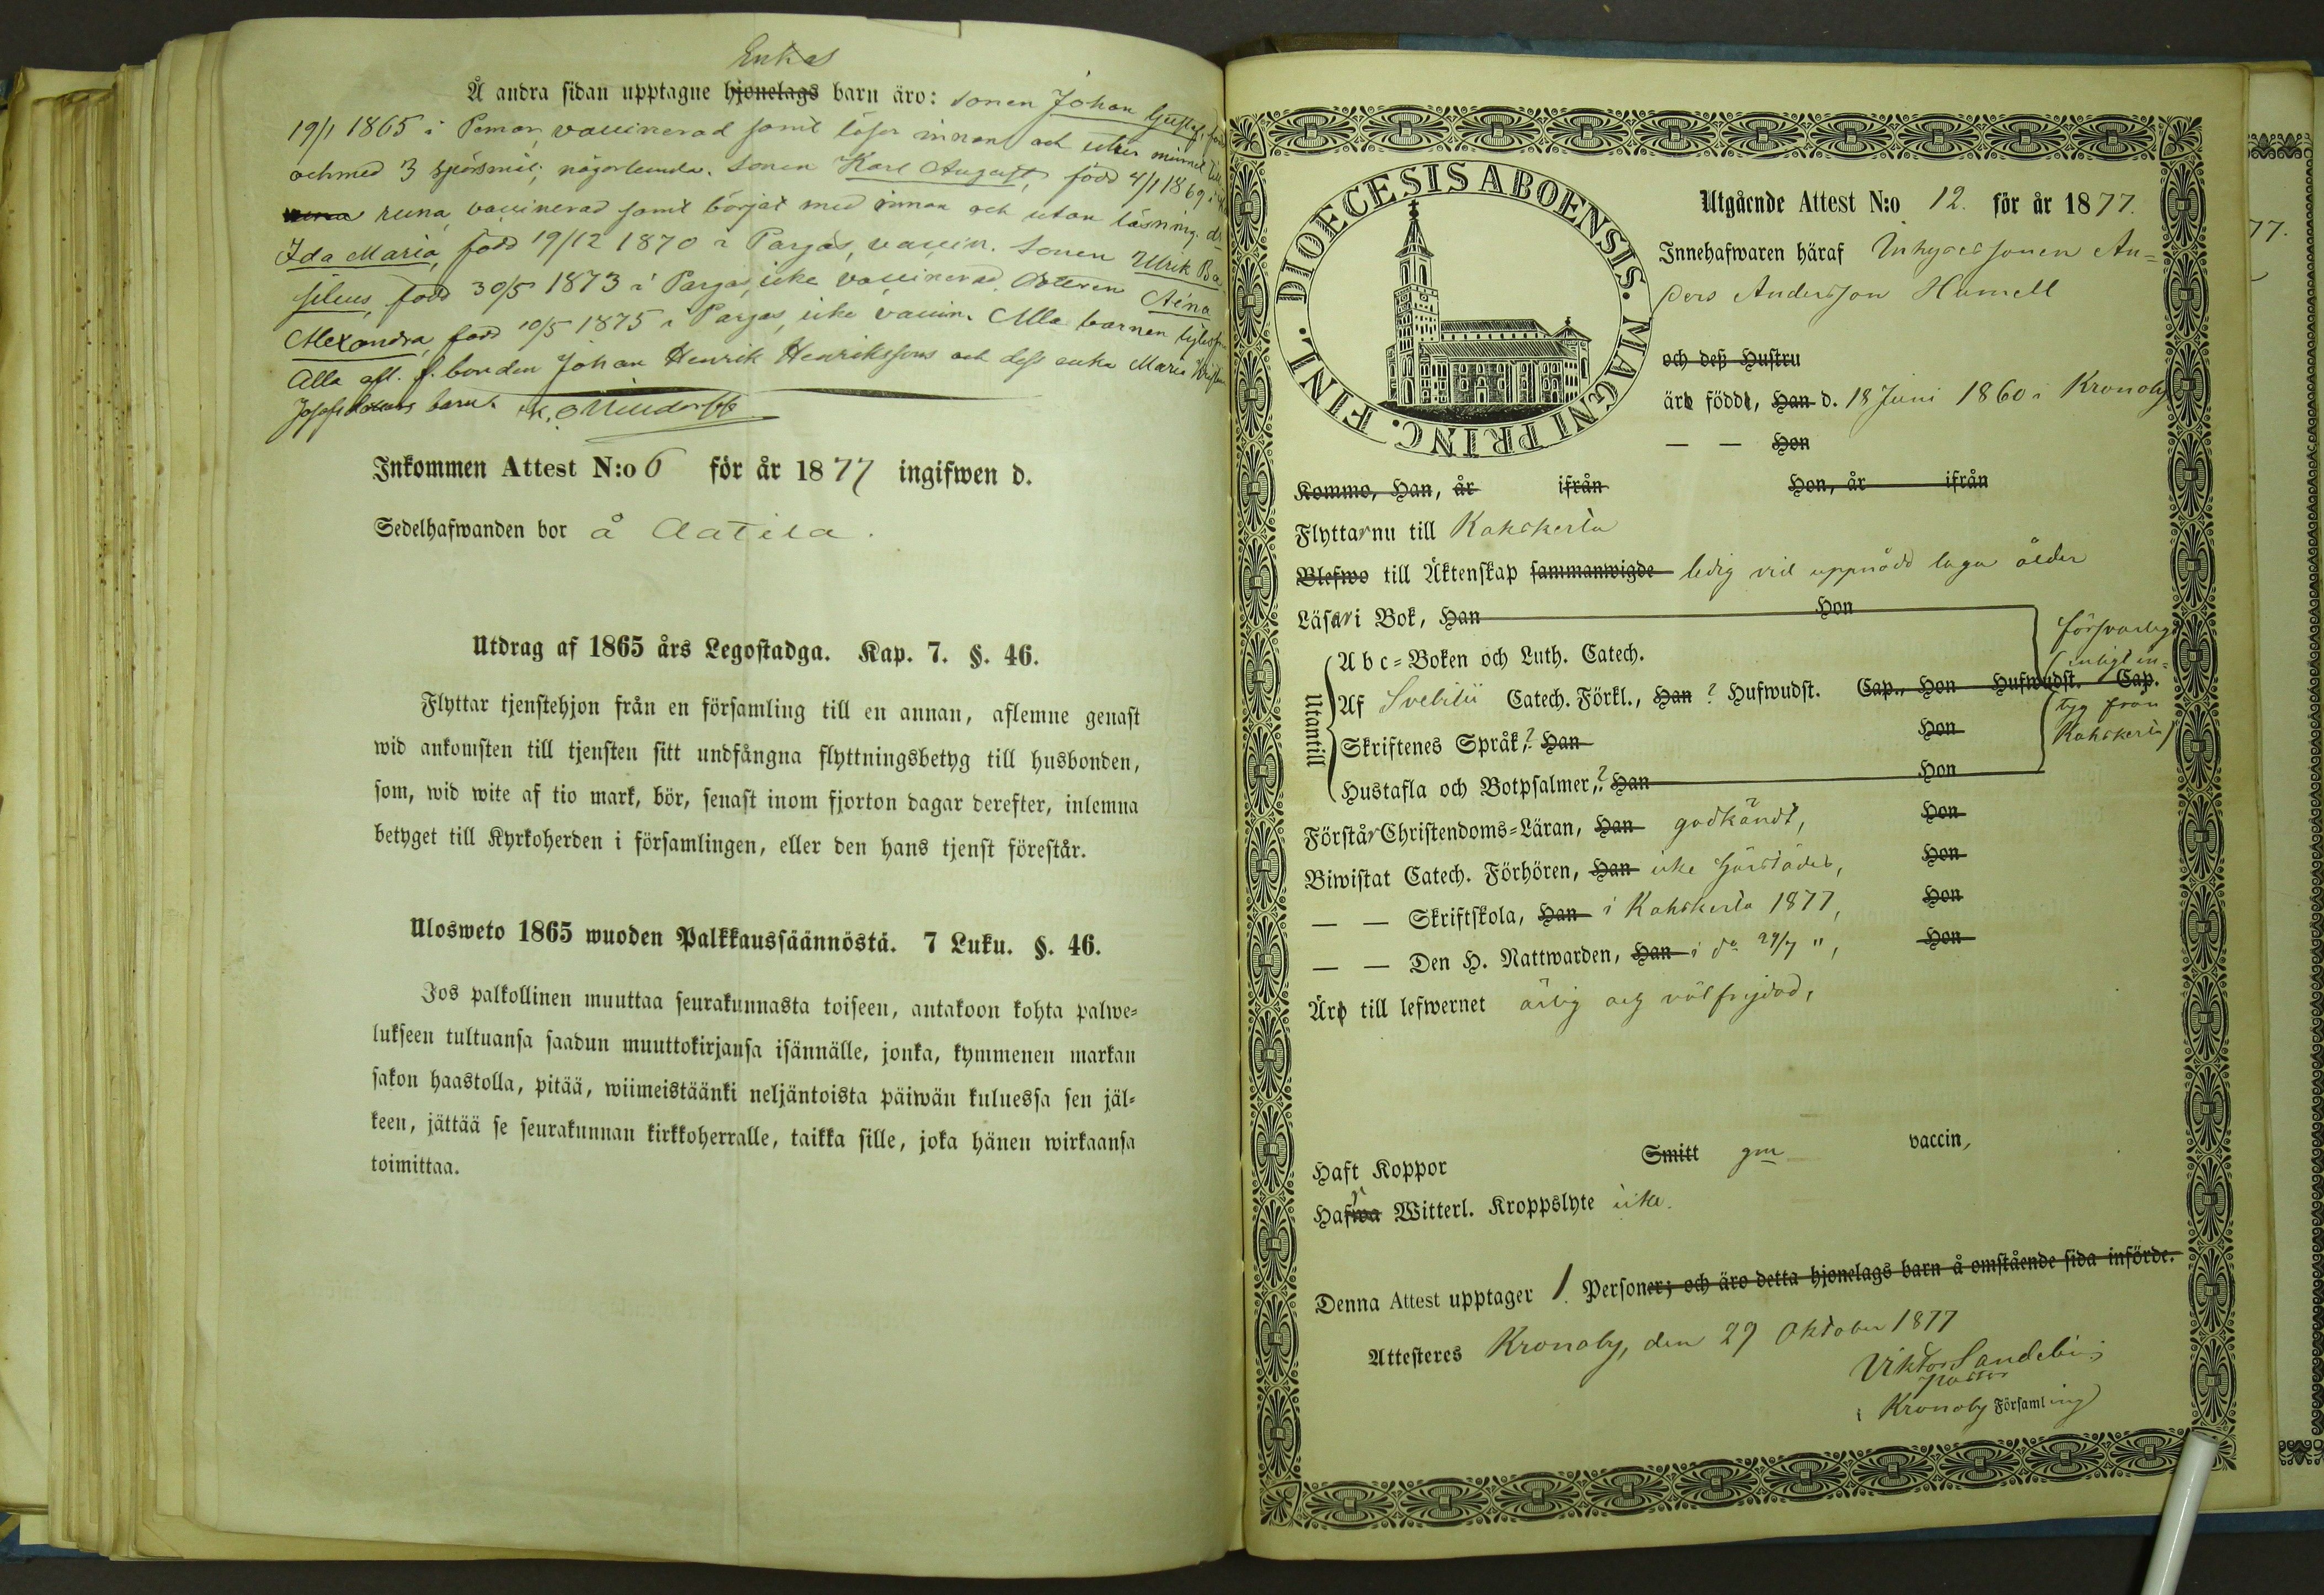 Enkas
Å andra sidan upptagne hjonelags barn äro: sonen Johan Gustaf, född
19/1 1865 i Pemar, vaccinerad samt läser innan och utur minnet till
och med 3 spörsmål; någorlunda. Sonen Karl August, född 4/1 1869 i
runa, vaccinerad samt börjat med innan och utan läsning. dr
Ida Maria, född 19/12 1870 i Pargas, vaccin. Sonen Ulrik Ba
silius, född 30/5 1873 i Pargas, icke vaccinerad. Dotteren Aina
Alexandra, född 10/5 1875 i Pargas, icke vaccin. Alla barnen lytesfri
Alla afl. f. bonden Johan Henrik Henrikssons och dess enka Maria
Josefsdotters barn.
Inkommen Attest N:o 6 för år 1877 ingifwen d.
Sedelhafwanden bor å Aatila.
Utdrag af 1865 års Legostadga. Kap. 7. §. 46.
Flyttar tjenstehjon från en församling till en annan, aflemne genast
wid ankomsten till tjensten sitt undfångna flyttningsbetyg till husbonden,
som, wid wite af tio mark, bör, senast inom fjorton dagar derefter, inlemna
betyget till Kyrkoherden i församlingen, eller den hans tjenst förestår.
Ulosweto 1865 wuoden Palkkaussäännöstä. 7 Luku. §. 46.
Jos palkollinen muuttaa seurakunnasta toiseen, antakoon kohta palwe-
lukseen tultuansa saadun muuttokirjansa isännälle, jonka, kymmenen markan
sakon haastolla, pitää, wiimeistäänki neljäntoista päiwän kuluessa sen jäl-
keen, jättää se seurakunnan kirkkoherralle, taikka sille, joka hänen wirkaansa
toimittaa.
DIOECESIS ABOENSIS. MAGNI PRINC. FINL.
Utgående Attest N:o 12. för år 1877.
Innehafwaren häraf Inhysessonen An-
ders Andersson Humell
och deß Hustru
äro födde, Han d. 18 Juni 1860 i Kronoby
— — Hon
Kommo, Han, år ifrån Hon, år ifrån
Flyttar nu till Kakskerta
Blefwo till Äktenskap sammanwigde ledig vid uppnådd laga ålder
Läsa i Bok, Han Hon
försvarligt
(enligt in-
tyg från
Kakskerta)
Utantill
A b c-Boken och Luth. Catech.
Af Svebilii Catech. Förkl., Han ? Hufwudst. Cap., Hon Hufwudst. Cap.
Skriftenes Språk,? Han Hon
Hustafla och Botpsalmer,? Han Hon
Förstår Christendoms-Läran, Han godkändt, Hon
Biwistat Catech. Förhören, Han icke härstädes, Hon
— — Skriftskola, Han i Kakskerta 1877, Hon
— — Den H. Nattwarden, Han i do 29/7 ", Hon
Äro till lefwernet ärlig och välfrejdad,
Haft Koppor Smitt gm vaccin,
Hafwa Witterl. Kroppslyte icke.
Denna Attest upptager 1. Personer; och äro detta hjonelags barn å omstående sida införde.
Attesteres Kronoby, den 29 Oktober 1877
Viktor
Pastor
i Kronoby Församling